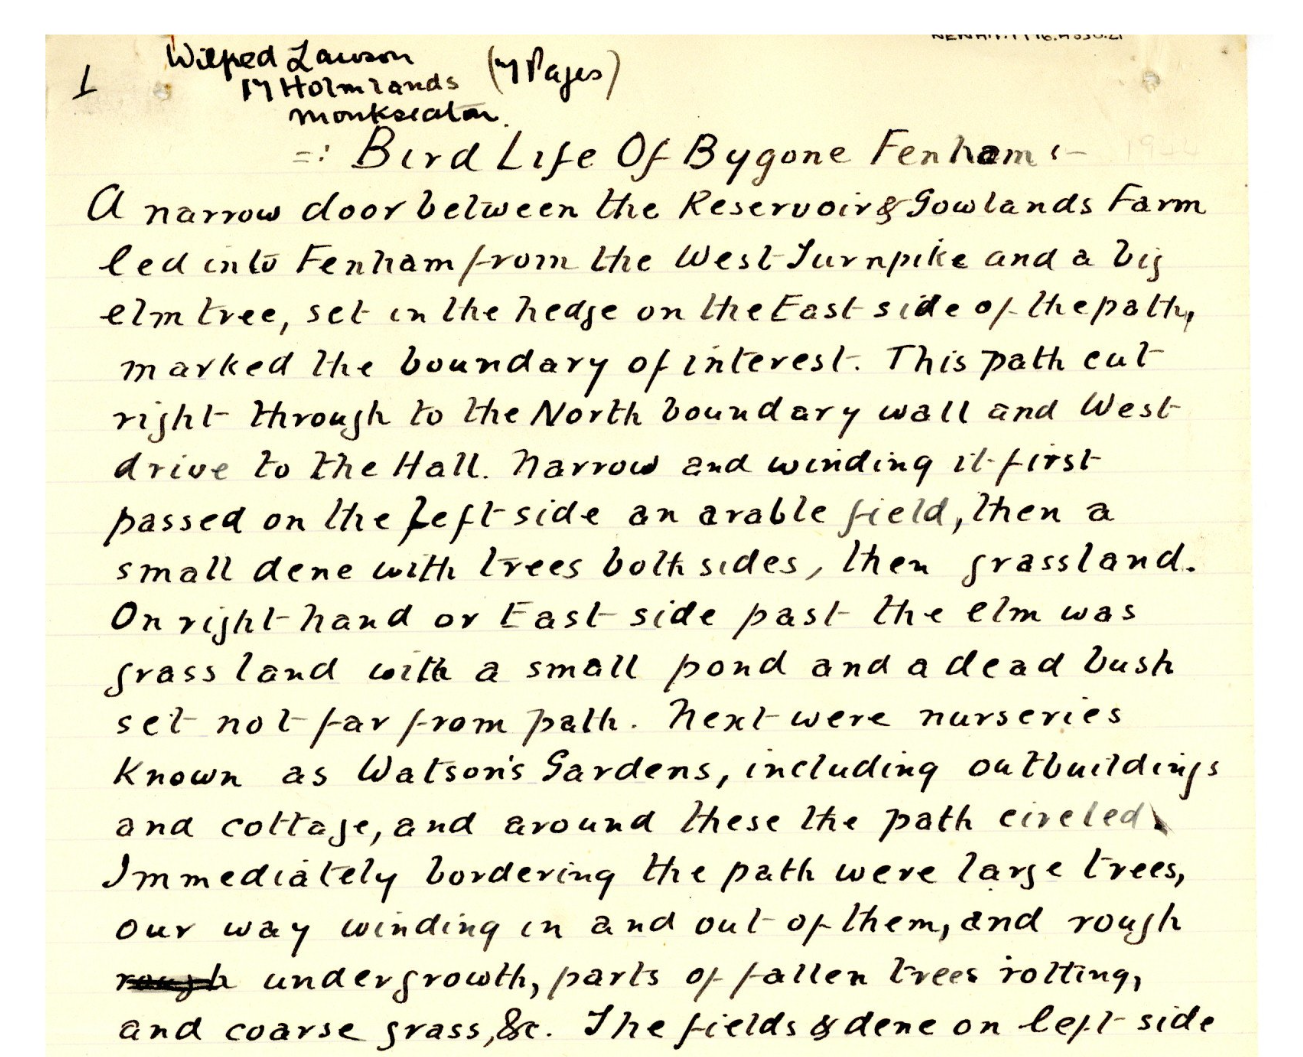 1
Wilfred Lawson
17 Holmlands (7 Pages)
Monkseaton.
=: Bird Life Of Bygone Fenham :-
A narrow door between the Reservoir & Gowlands Farm
led into Fenham from the West Turnpike and a big
elm tree, set in the hedge on the East side of the path,
marked the boundary of interest. This path cut
right through to the North boundary wall and West
drive to the Hall. Narrow and winding it first
passed on the left side an arable field, then a
small dene with trees both sides, then grassland.
On right hand or East side past the elm was
grass land with a small pond and a dead bush
set not far from path. Next were nurseries
known as Watson's Gardens, including outbuildings
and cottage, and around these the path circled.
Immediately bordering the path were large trees,
our way winding in and out of them, and rough
rough undergrowth, parts of fallen trees rotting,
and coarse grass, &c. The fields & dene on left side